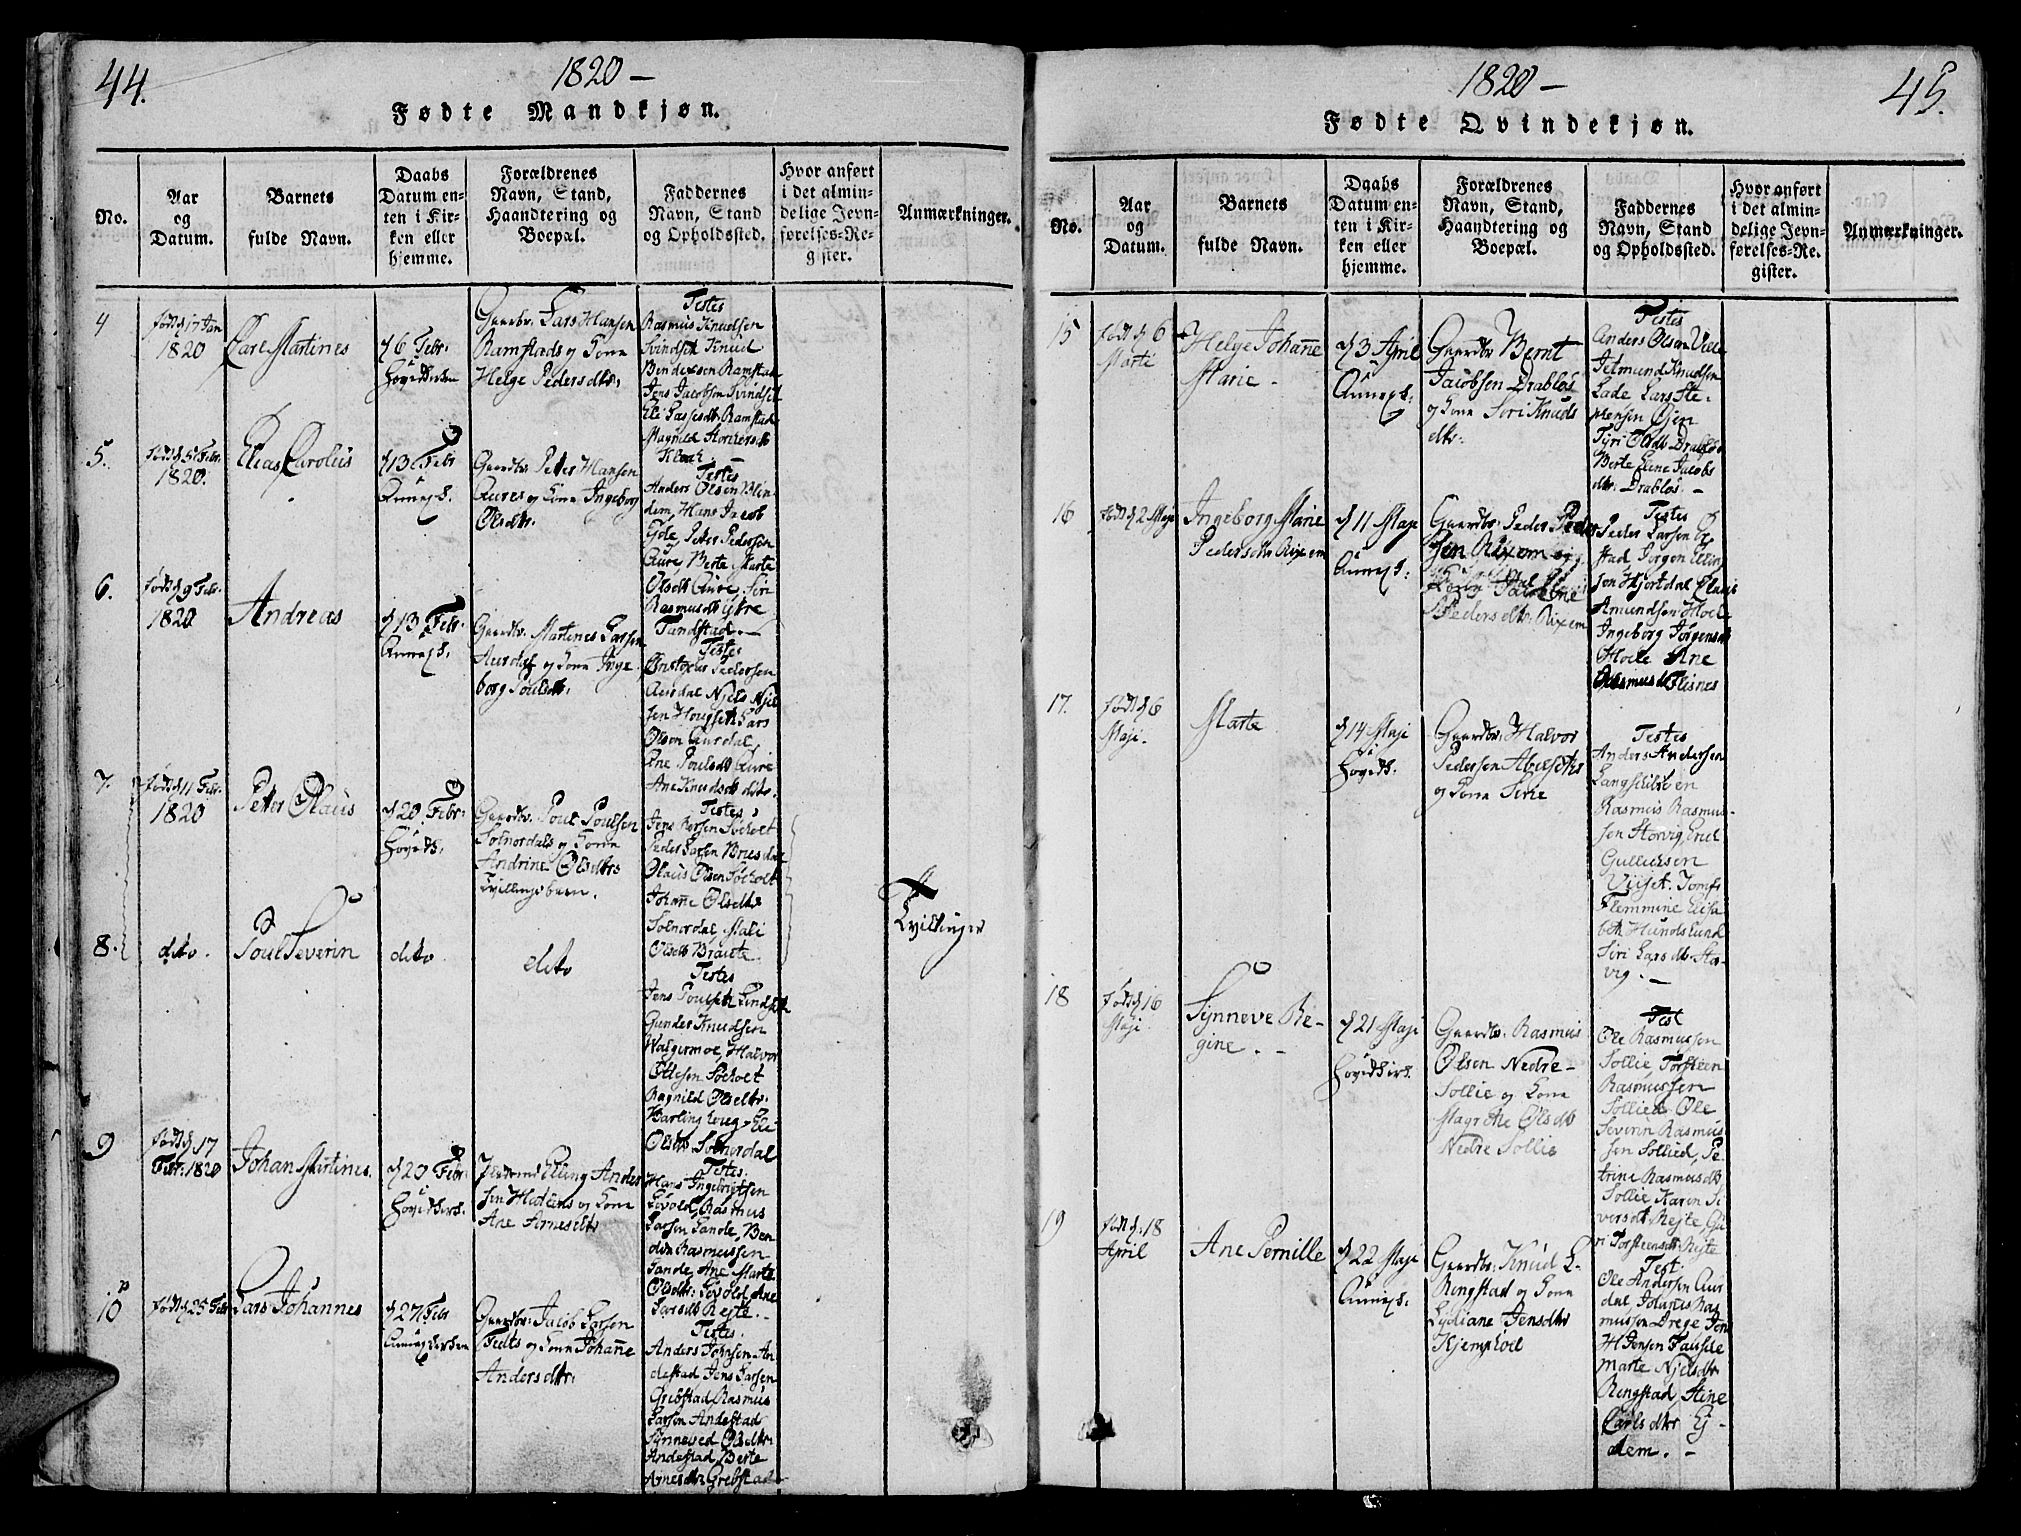 44.
1820 —
Fødte Mandkjøn.
No.
Aar
og
Datum.
Barnets
fulde Navn.
Daabs
Datum en-
ten i Kir-
ken eller
hjemme.
Forældrenes
Navn, Stand,
Haandtering og
Boepæl.
Faddernes
Navn, Stand
og Opholdssted.
Hvor anført
i det almin-
delige Jevn-
førelses-Re-
gister.
Anmærkninger.
4
født d 17 Jan
1820
Carl Martines
d 6 Febr:
Gaardbr. Lars Hansen
Ramstads og Kone
Helge Pedersdtr:
Testes
Rasmus Knudsen
Svindset Knud
Bendixsen Ramstad
Jens Jacobsen Svindset
Ramstad
5.
født d 5 Febr.
1820.
Elias Carolus
d 13 Febr
Annex k.
Gaardbr: Peter Hansen
Aures og Kone Ingeborg
Olsdtr.
Testes
Anders Olsen Blin-
dem, Hans Jacob
Gjde, Peter Pedersen
Aure, Berte Marte
Olsdtr Aure, Siri
Rasmusdtr Ytre
Tandstad. —
6.
født d 9 Febr.
1820
Andreas
d 13 Febr.
Annex k.
Gaardbr. Martines Larsen
Aurdal og Kone Inge
borg Poulsdtr.
Testes
Pedersen
Aursdal Njels Njel
sen Hougset Lars
Olsen Aursdal,
Ane Poulsdtr Aure
Ane Knudsdtr dito.
7.
født d 11 Febr.
1820
Peter Olaus
d 20 Febr:
Hovedk.
Gaardbr. Poul Poulsen
Solnordals og Kone
Andrine Olsdtr
Tvillingebørn.
Testes
Jens Søeholt
Peder Larsen
Olaus Olsen Søeholt
Johañe Olsdtr
Solnordal Mali
Olsdtr Braute.
8.
dito.
Poul Severin
dito
dito
Testes
Jens Poulsen
Gunder Knudsen
Walgermoe, Halvor
Ottesen Søeholt
Ragnild Olsdtr.
Olsdtr Solnordal
Tvillinger
9
født d 17
Febr: 1820
Johan Martines.
d 20 Febr.
Hovedkirk.
Elling Anders
sen og Kone
Ane Arnesdtr
Testes.
Hans Ingebrigtsen
Løvold, Rasmus
Larsen Lande, Ben
dix Rasmussen
Tande, Ane Marte
Olsdtr: Løvold, Ane
Larsdtr Rejte.
10
født d 25 Febr
Lars Johannes
d 27 Febr
Annexkirken
Gaardbr: Jacob Larsen
Tedts og Kone Johañe
Andersdtr:
Testes.
Anders Johnsen An-
destad Jens Larsen
Grebstad, Rasmus
Larsen Andestad
Synneved Olsdtr.
Andestad, Berte
Arnesdtr Grebstad
1820 —
45.
Fødte Qvindekjøn.
No.
Aar
og
Datum.
Barnets
fulde Navn.
Daabs
Datum en-
ten i Kir-
ken eller
hjemme.
Forældrenes
Navn, Stand,
Haandtering og
Boepæl.
Faddernes
Navn, Stand
og Opholdssted.
Hvor anført
i det almin-
delige Jevn-
førelses-Re-
gister.
Anmærkninger.
15
født d 6
Marti
Helge Johañe
Marie —
d 3 April
Annex k:
Gaardbr Bernt
Jacobsen Drabløs
og Kone Siri Knuds
dtr:
Testes
Anders Olsen
Jetmund Knudsen
Lade Lars Ste-
phensen Øjen
Drabløs
Berte Elene Jacobs
dtr. Drabløs. —
16
født d 2 Maji
Ingeborg Marie
Pedersdtr Rixem
d 11 Maji
Annex k:
Gaardbr: Peder Peder
sen Rixem og
Kone Jacobine
Pedersdtr: Rixem
Testes
Peder Larsen
Jørgen Elling
sen Hjortdal Claus
Amundsen Hoel
Ingeborg Jørgensdtr
Hoel Ane
Rasmusdtr Flisnes
17.
født d 6
Maji.
Marte
d 14 Maji
Hovedk.
Gaardbr: Halvor
Pedersen Abelsets
og Kone Sirie
Testes
Anders Andersen
Rasmus Rasmus-
sen Storvig, End
Gullichsen
Viiset. Jomfr
Flemmine Elisa
beth Hundslund
Siri Larsdtr Stor-
vig. —
18
født d 16
Maji.
Synneve Re-
gine. —
d 21 Maji
Hovedkirk.
Gaardbr: Rasmus
Olsen Nedre-
Sollie og Kone
Magrethe Olsdtr
Nedre Sollie
Test
Ole Rasmussen
Sollie, Torsteen
Rasmussen
Sollied, Ole
Severin Rasmus
sen Sollied, Pe-
trine Rasmusdtr
Sollie Karen Si
versdtr Rejte, Gu
ri Torsteensdtr: Rejte
19
født d. 18
April
Ane Pernille
d 22 Maji
Annex k.
Gaardbr: Knud L.
Ringstad og Kone
Lydiane Jensdtr
Hjemhoel
Test:
Ole Andersen Aur
dal, Johanes Ras
mussen Drege Jon
H. Jensen
Marte Njelsdtr
Ringstad, Stine
Carlsdtr Ej-
dem. —